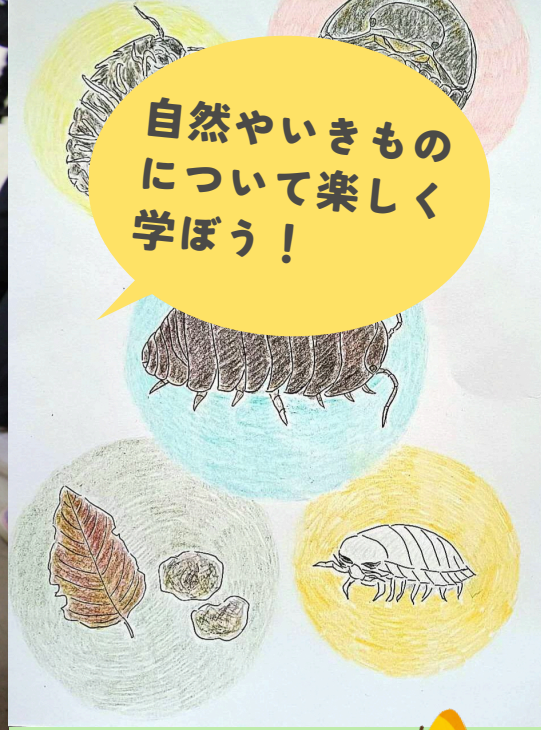 自然やいきもの
について楽しく
学ぼう！